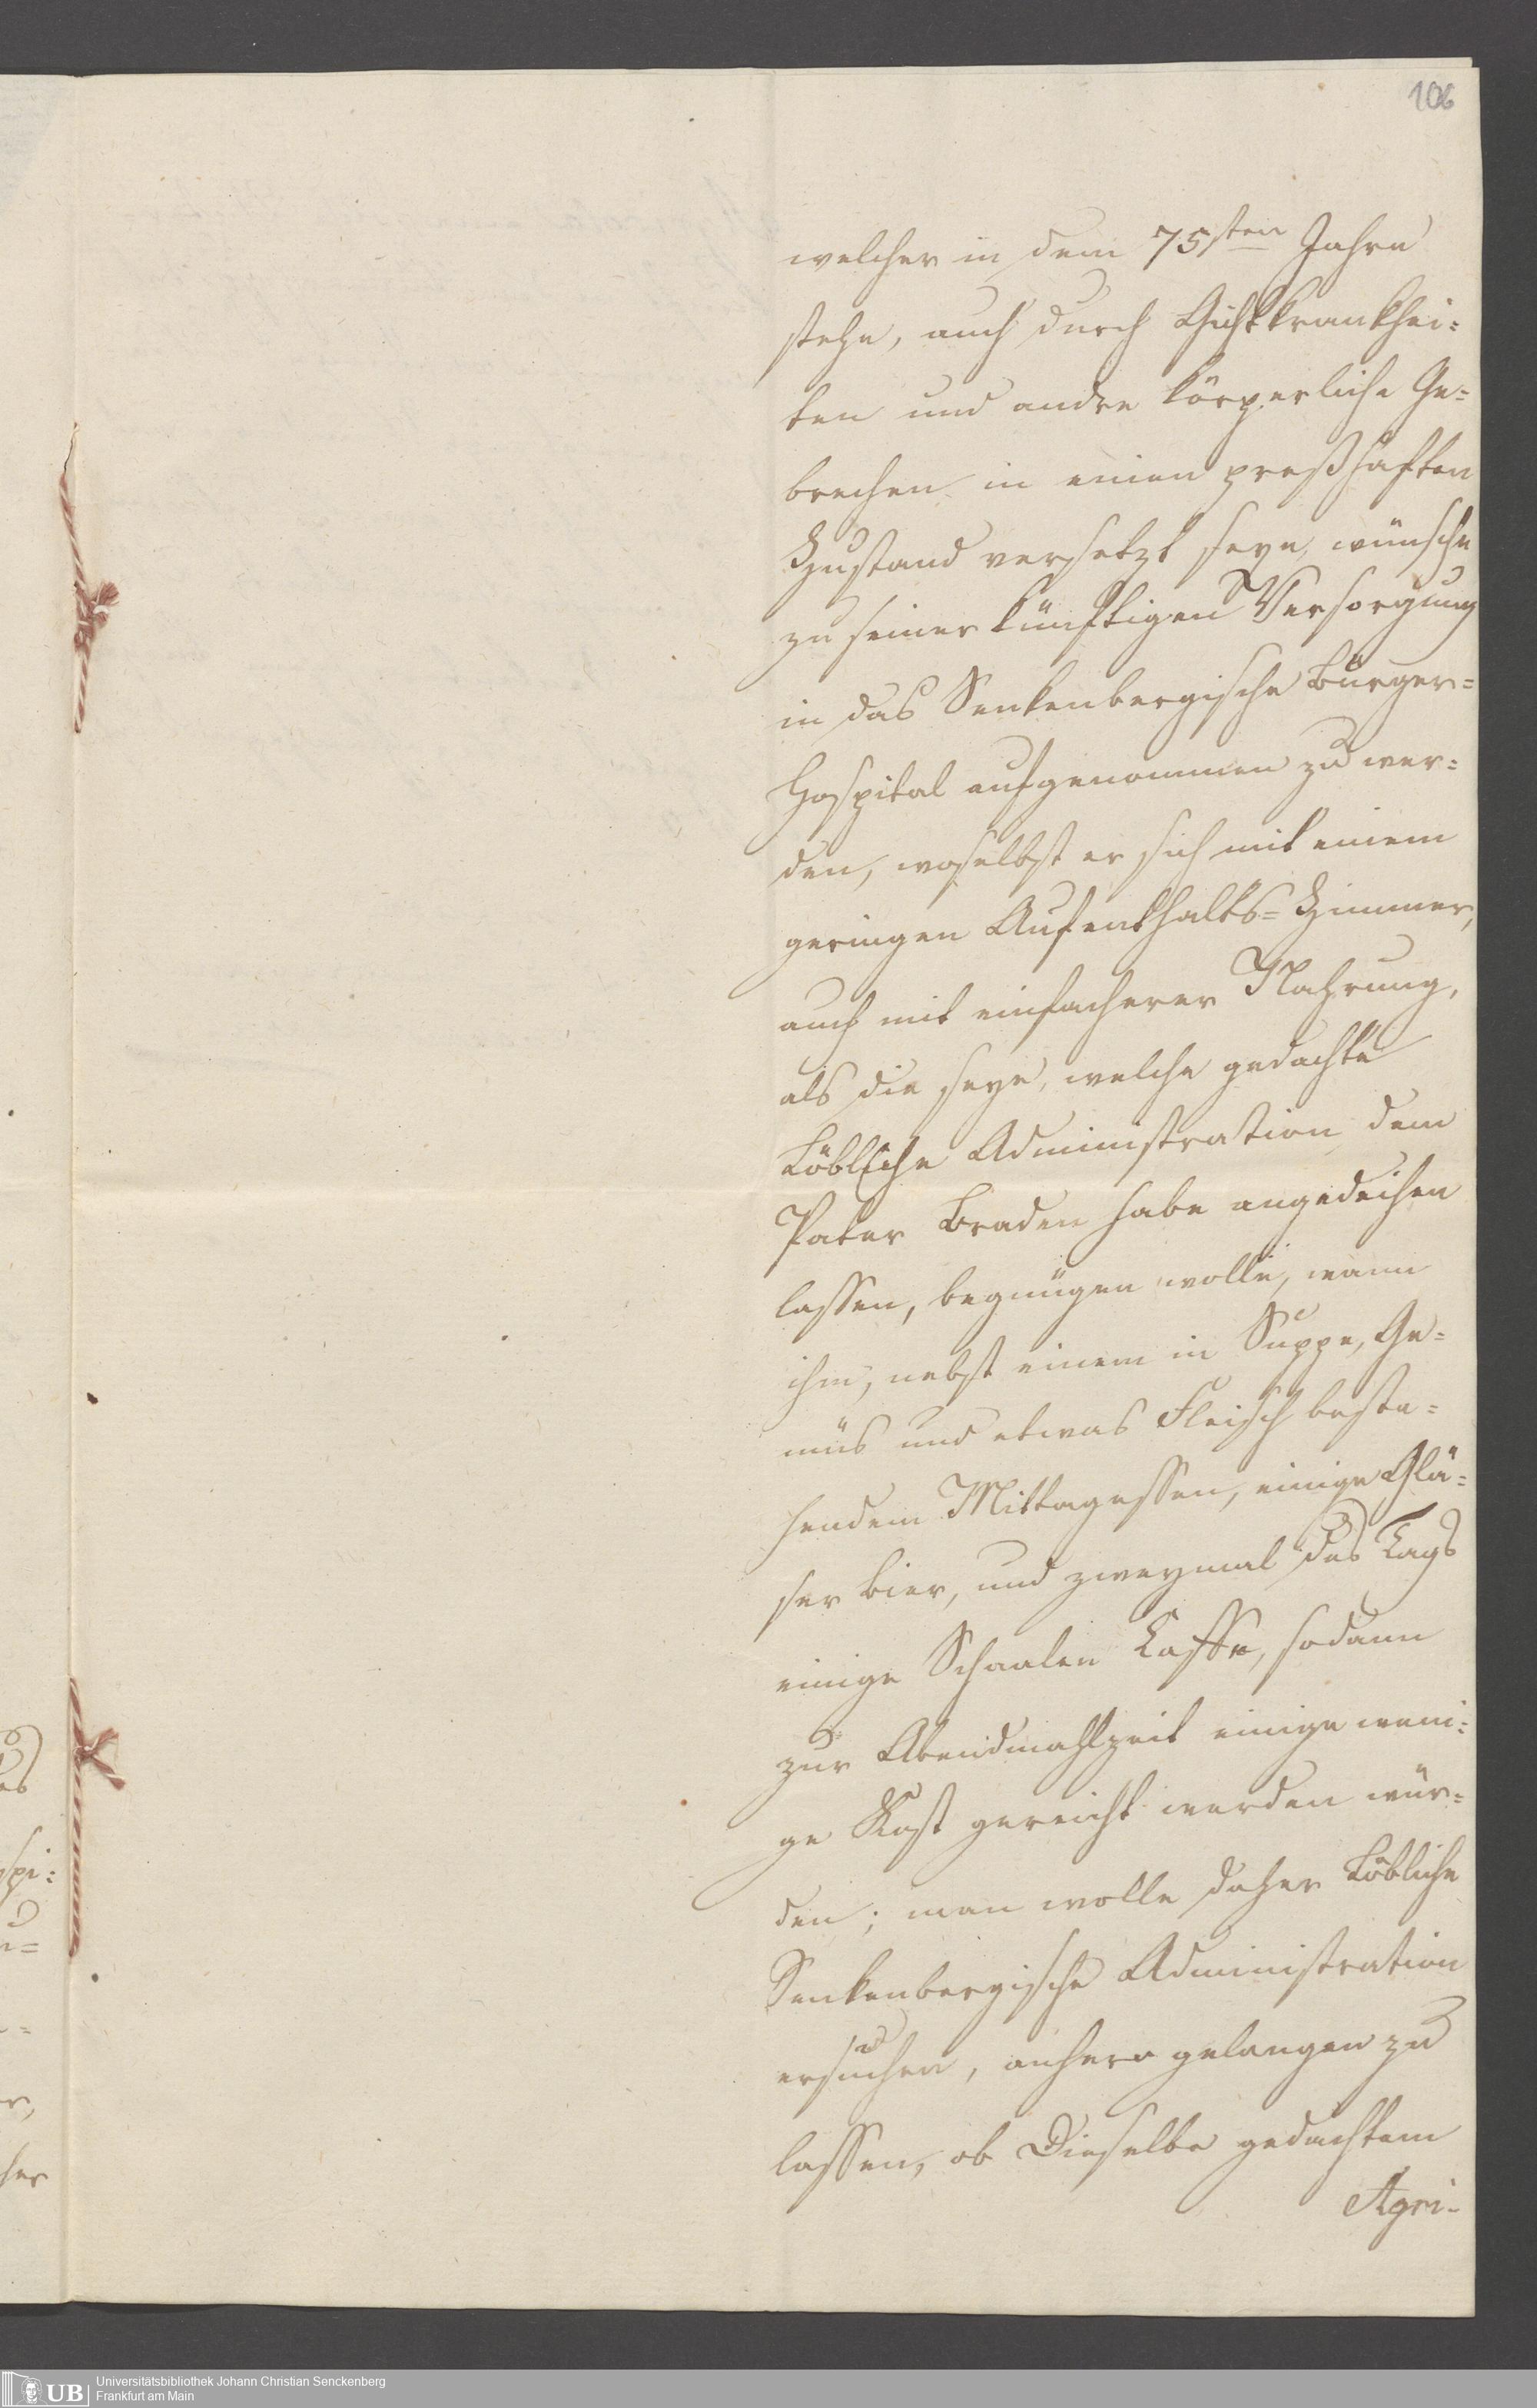 106
welcher in dem 75sten Jahre
stehe, auch durch Gichtkrankhei=
ten und andre körperliche Ge=
brechen in einen preßhaften
Zustand versetzt seye, wünsche
zu seiner künftigen Versorgung
in das Senkenbergische Bürger=
Hospital aufgenommen zu wer=
den, woselbst er sich mit einem
geringen Aufenthalts=Zimmer,
auch mit einfacherer Nahrung,
als die seye, welche gedachte
Löbliche Administration dem
Pater Braden habe angedeihen
lassen, begnügen wolle, wann
ihm, nebst einem in Suppe, Ge=
müs und etwas Fleisch beste=
hendem Mittagessen, einige Glä=
ser Bier, und zweymal des Tags
einige Schaalen Caffe, sodann
zur Abendmahlzeit einige weni=
ge Kost gereicht werden wür=
den; man wolle daher Löbliche
Senkenbergische Administration
ersuchen, anhero gelangen zu
lassen, ob Dieselbe gedachtem
Agri-
spi=
Universitätsbibliothek Johann Christian Senckenberg
Frankfurt am Main
UB